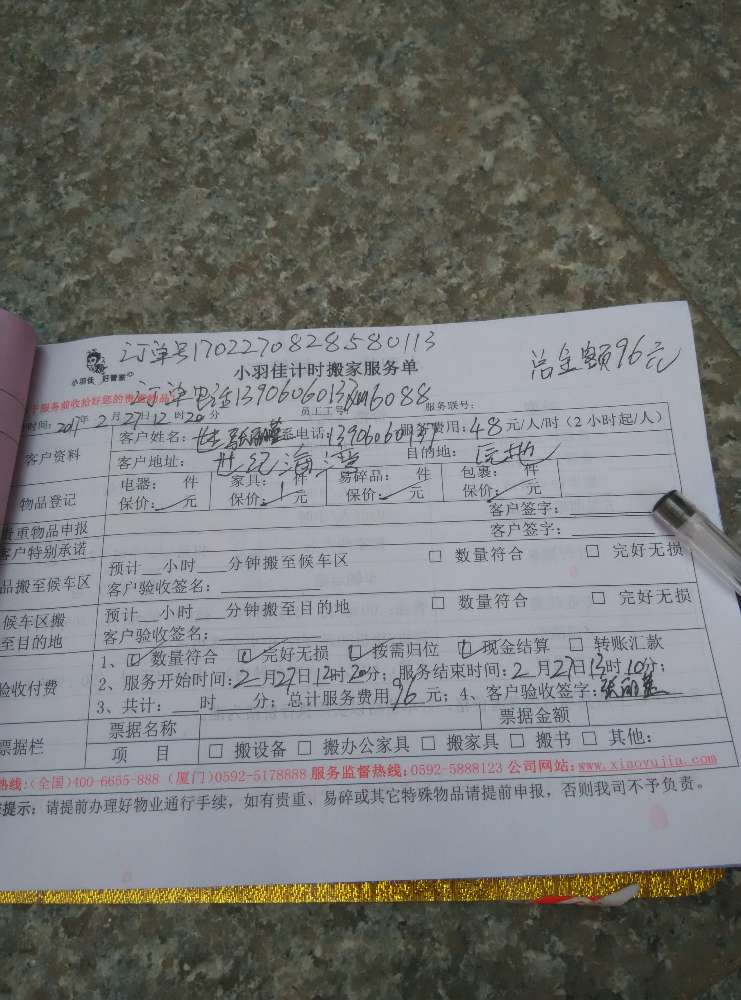 订单号1702270828580113
总金额96元
小羽佳 好管家
小羽佳计时搬家服务单
服务前收拾好您的贵重物品
订单电话
6088
时间:2017年2月27日12时20分 员工工号: 服务联号:
客户资料 客户姓名: 联系电话: 服务费用:48元/人/时(2小时起/人)
客户地址: 世纪海湾 目的地:
物品登记 电器: 件 家具: 1件 易碎品: 件 包裹: 件
保价: 元 保价: 元 保价: 元 保价: 元
客户签字:
贵重物品申报 客户签字:
客户特别承诺
品搬至候车区 预计 小时 分钟搬至候车区 □ 数量符合 □ 完好无损
客户验收签名:
候车区搬至目的地 预计 小时 分钟搬至目的地 □ 数量符合 □ 完好无损
客户验收签名:
验收付费 1、☑ 数量符合 ☑ 完好无损 ☑ 按需归位 ☑ 现金结算 □ 转账汇款
2、服务开始时间:2月27日12时20分;服务结束时间:2月27日13时10分;
3、共计: 时 分;总计服务费用96元;4、客户验收签字:
票据栏 票据名称 票据金额
项 目 □ 搬设备 □ 搬办公家具 □ 搬家具 □ 搬书 □ 其他:
热线:(全国)400-6655-888 (厦门)0592-5178888 服务监督热线:0592-5888123 公司网站:www.xiaoyujia.com
提示:请提前办理好物业通行手续,如有贵重、易碎或其它特殊物品请提前申报,否则我司不予负责。